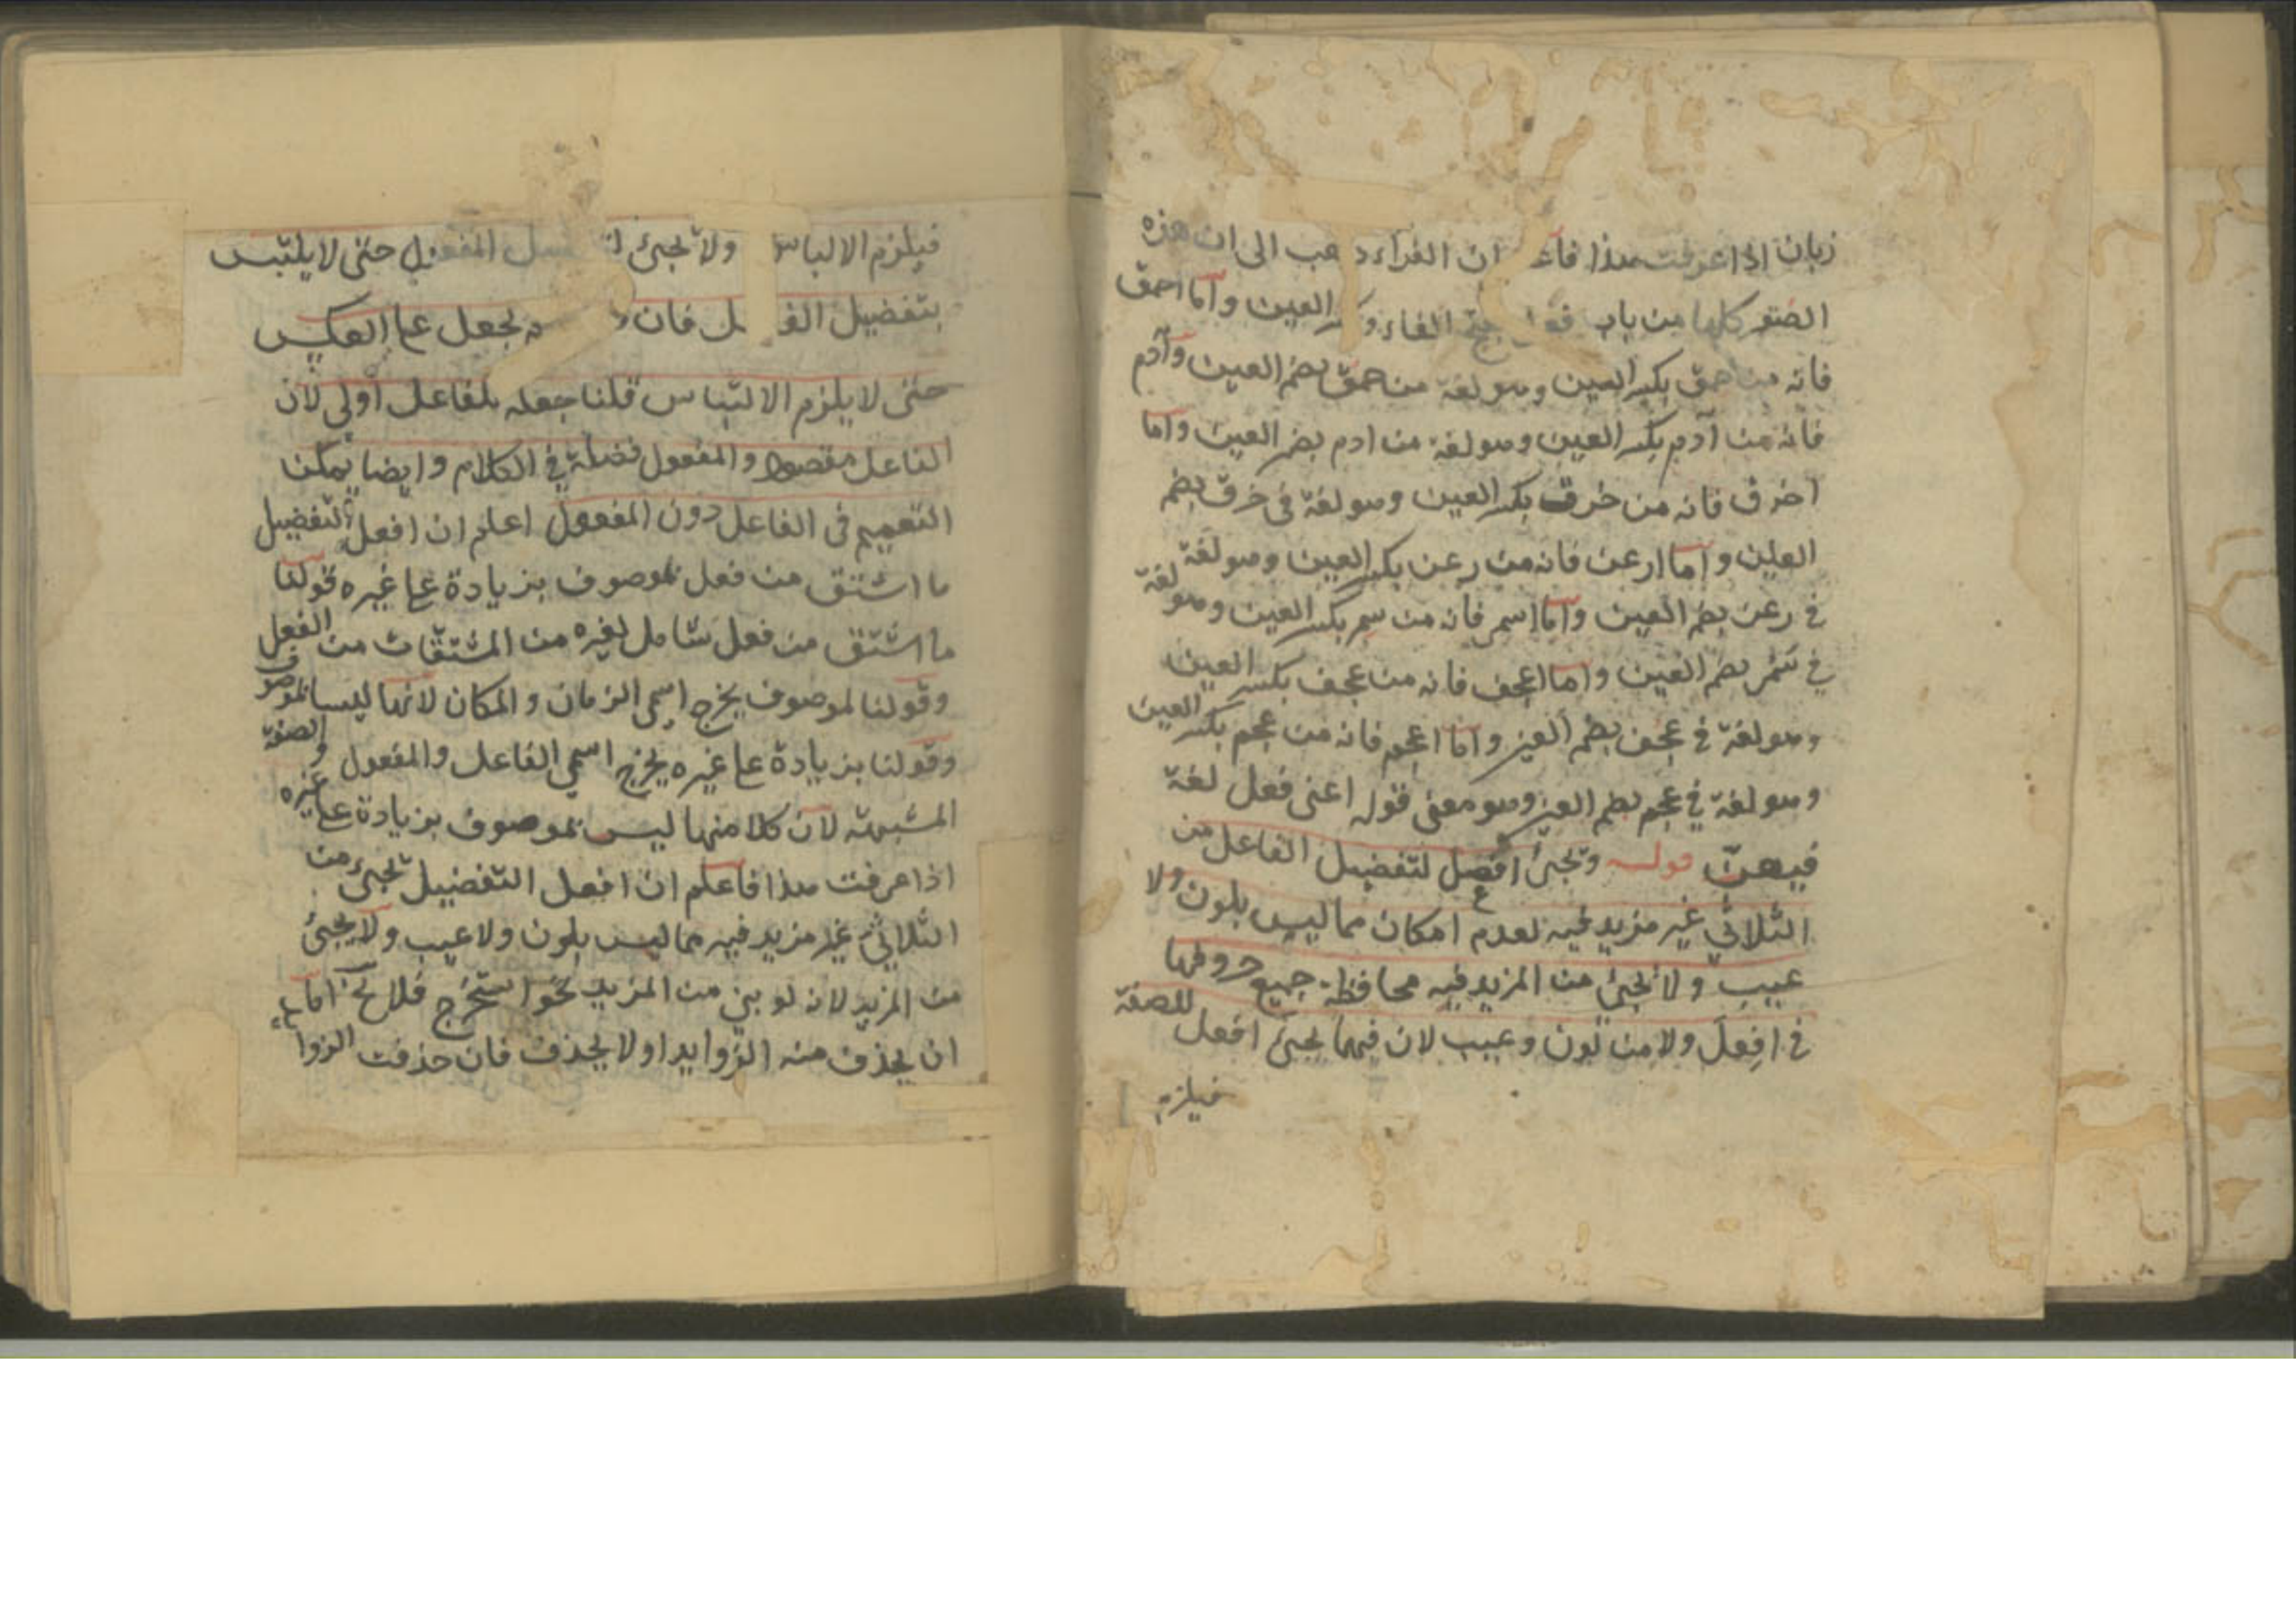 زبان اذا عرفت هذا فاعلم ان الفراء ذهب الى ان هذه
الصنو كلها من باب فعل الفاء وكسر العين واما احمق
فانه من حمق بكسر العين وهو لغة من حمق بضم العين وآدم
فانه من آدم بكسر العين وهو لغة من ادم بضم العين واما
اخرق فانه من خرق بكسر العين وهو لغة فى خرق بضم
العين واما ارعن فانه من رعن بكسر العين وهو لغة
فى رعن بضم العين واما اسمر فانه من سمر بكسر العين وهو لغة
فى سمر بضم العين واما اعجف فانه من عجف بكسر العين
وهو لغة فى عجف بضم العين واما اعجم فانه من عجم بكسر العين
وهو لغة فى عجم بضم العين وهو معنى قوله اعنى فعل لغة
فيهن قوله وتجئ افعل لتفضيل الفاعل من
الثلاثي غير مزيد فيه لعدم امكان مما ليس بلون ولا
عيب ولا تجئ من المزيد فيه محافظة جميع حروفها
فى افعل ولا من لون وعيب لان فيهما تجئ افعل للصفة
فيلزم
فيلزم الالباس ولا تجئ المفعول حتى لا يلتبس
بتفضيل الفاعل فان يجعل على العكس
حتى لا يلزم الالتباس قلنا جعله للفاعل اولى لان
الفاعل مقصود والمفعول فضلة فى الكلام وايضا يمكن
التعميم فى الفاعل دون المفعول اعلم ان افعل التفضيل
ما اشتق من فعل لموصوف بزيادة على غيره قولنا
ما اشتق من فعل شامل لغيره من المشتقات من الفعل
وقولنا لموصوف يخرج اسمى الزمان والمكان لانهما ليسا لموصوف
وقولنا بزيادة على غيره يخرج اسمى الفاعل والمفعول والصفة
المشبهة لان كلا منها ليس لموصوف بزيادة على غيره
اذا عرفت هذا فاعلم ان افعل التفضيل تجئ من
الثلاثي غير مزيد فيه مما ليس بلون ولا عيب ولا تجئ
من المزيد لانه لو بني من المزيد نحو استخرج فلا يخ اما
ان يحذف منه الزوايد او لا يحذف فان حذفت الزوا